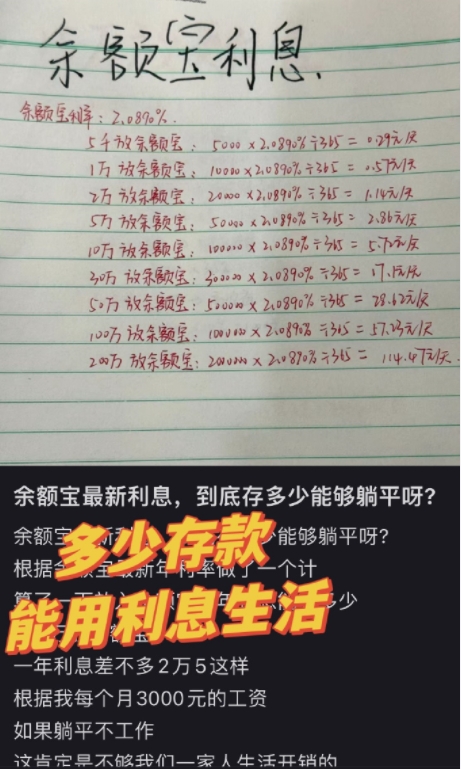 余额宝利息.
余额宝利率：2.0890%.
5千放余额宝：5000×2.0890%÷365= 0.29元/天
1万放余额宝：10000×2.0890%÷365= 0.57元/天
2万放余额宝：20000×2.0890%÷365= 1.14元/天
5万放余额宝：50000×2.0890%÷365= 2.86元/天
10万放余额宝：100000×2.0890%÷365= 5.72元/天
30万放余额宝：300000×2.0890%÷365= 17.17元/天
50万放余额宝：500000×2.0890%÷365= 28.62元/天
100万放余额宝：1000000×2.0890%÷365= 57.23元/天
200万放余额宝：2000000×2.0890%÷365= 114.47元/天.
余额宝最新利息，到底存多少能够躺平呀?
余额宝 能够躺平呀?
多少存款
根据 额宝最新年利率做了一个计
能用利息生活
一年利息差不多2万5这样
根据我每个月3000元的工资
如果躺平不工作
这肯定是不够我们一家人生活开销的